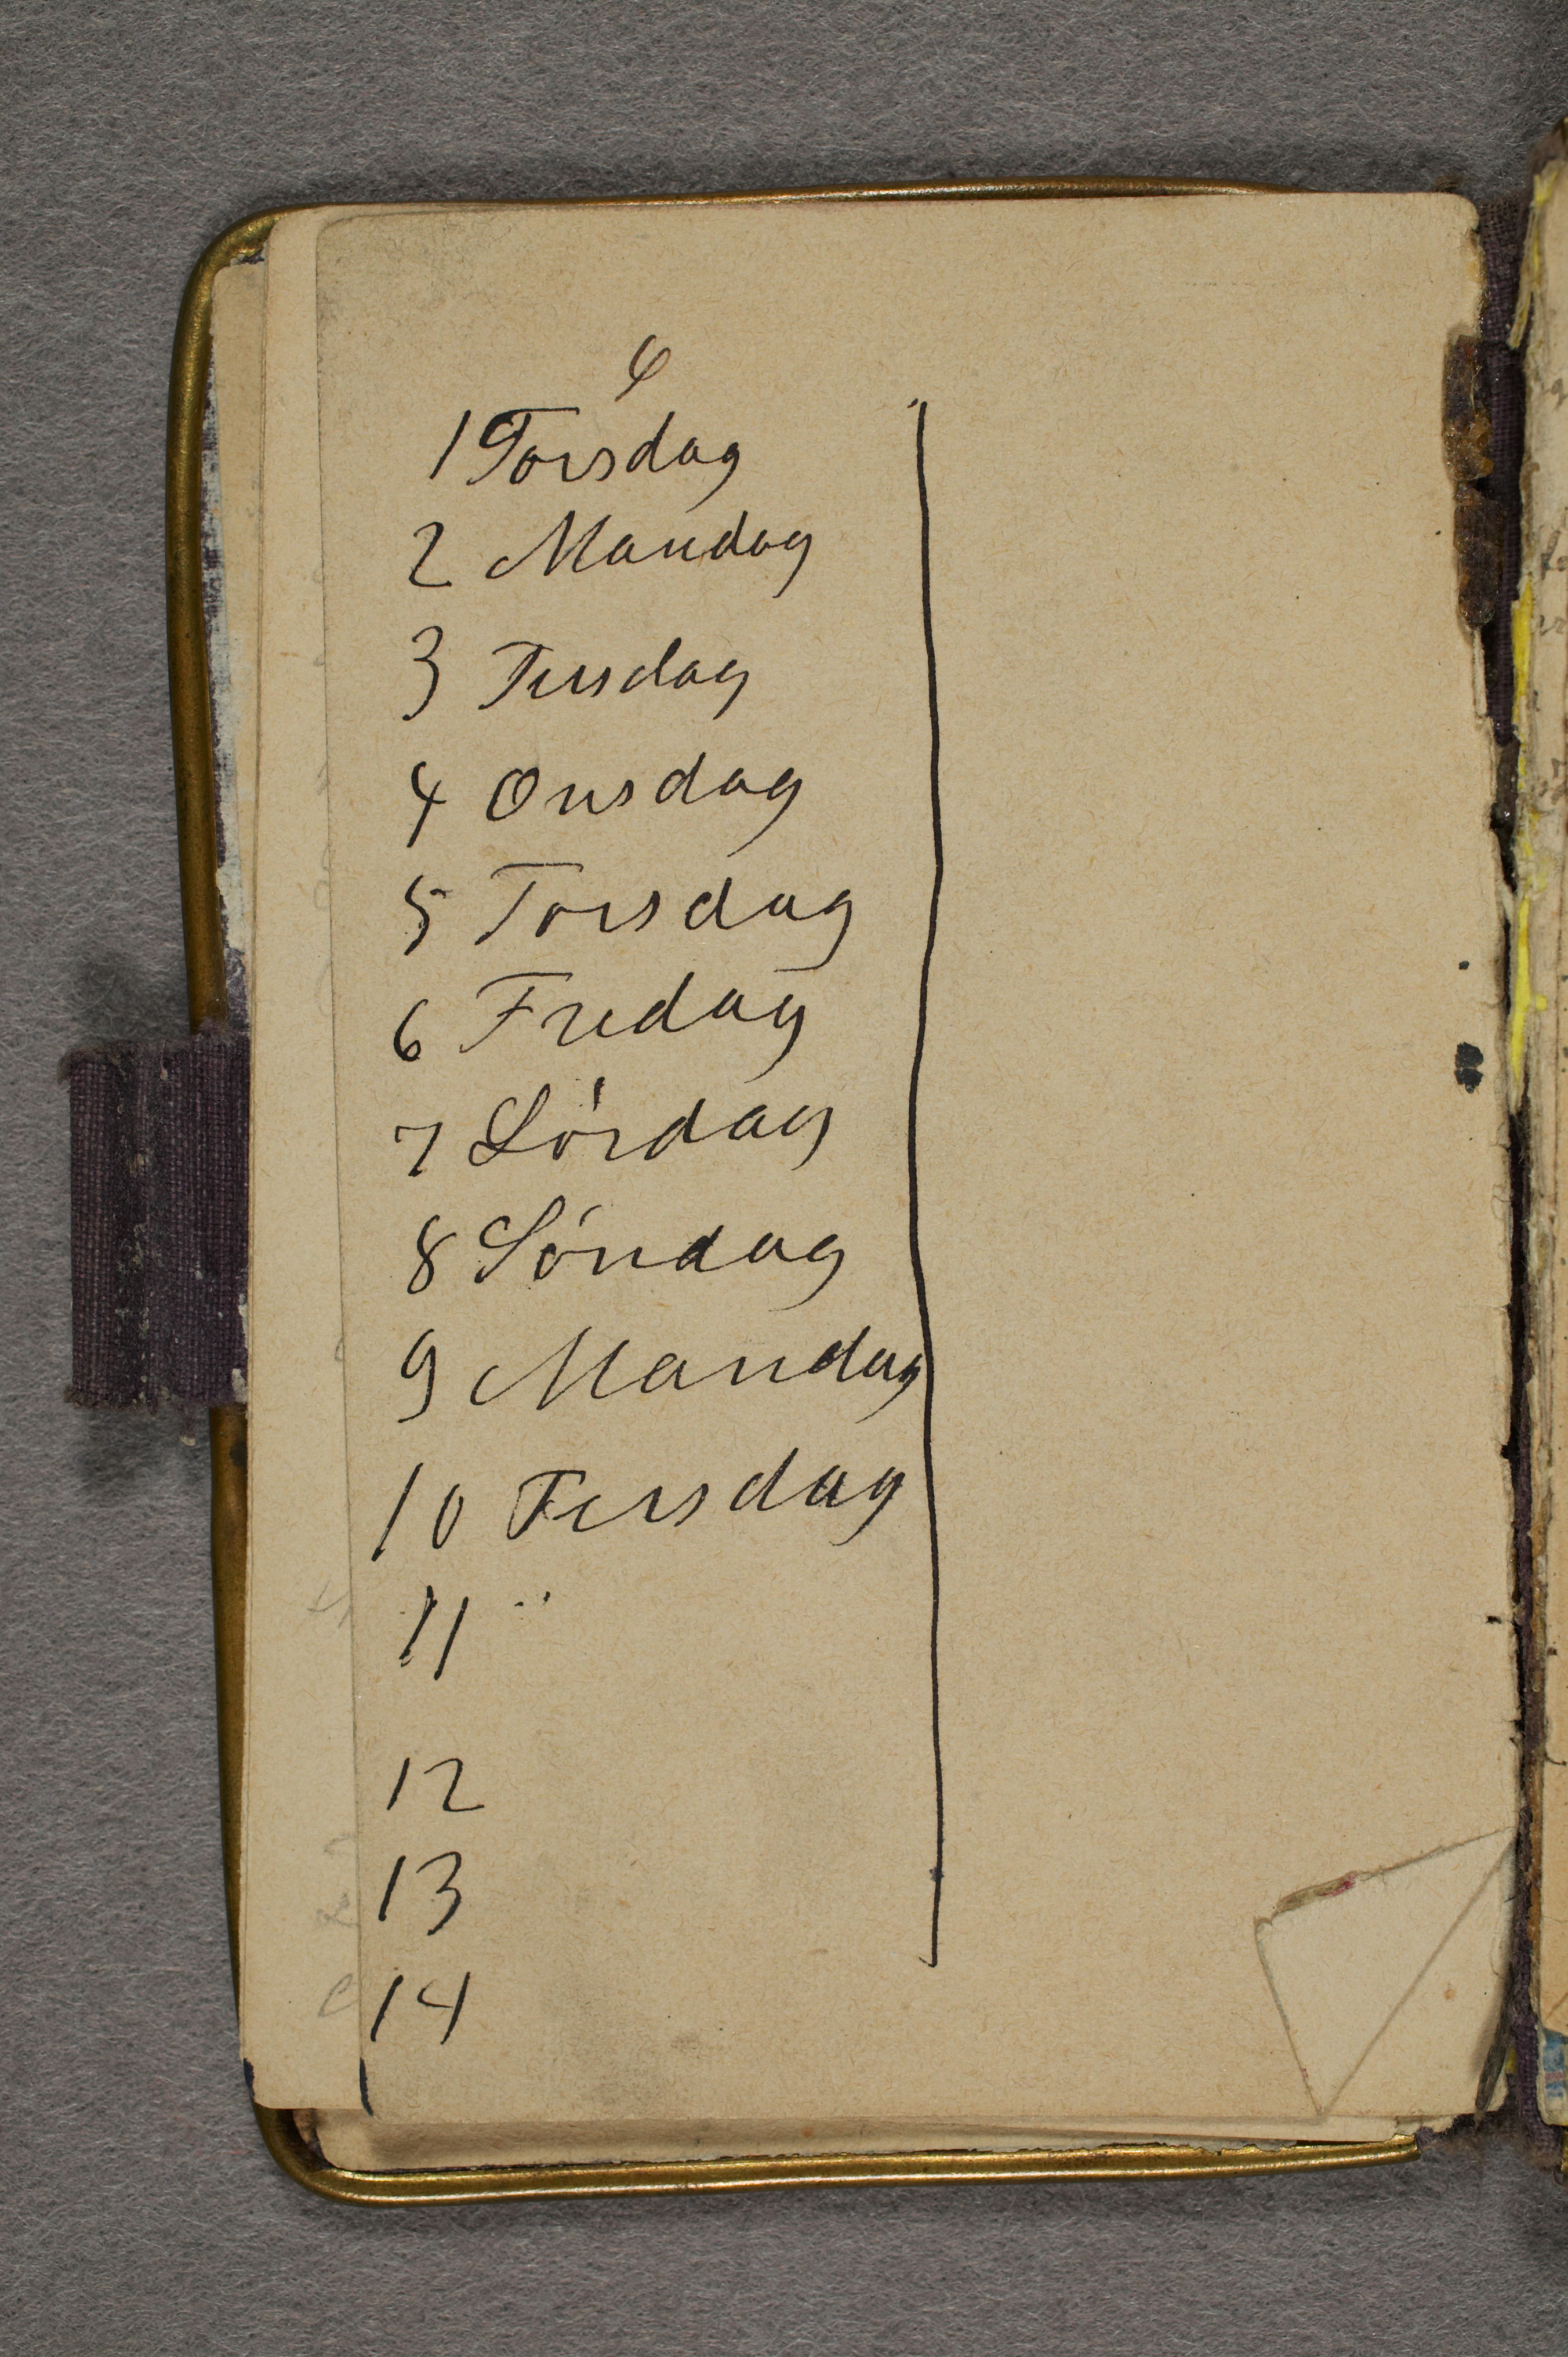 1 Torsdag
2 Mandag
3 Tirsdag
4 Onsdag
5 Torsdag
6 Fredag
7 Lørdag
8 Søndag
9 Mandag
10 Tirsdag
11 "
12
13
14